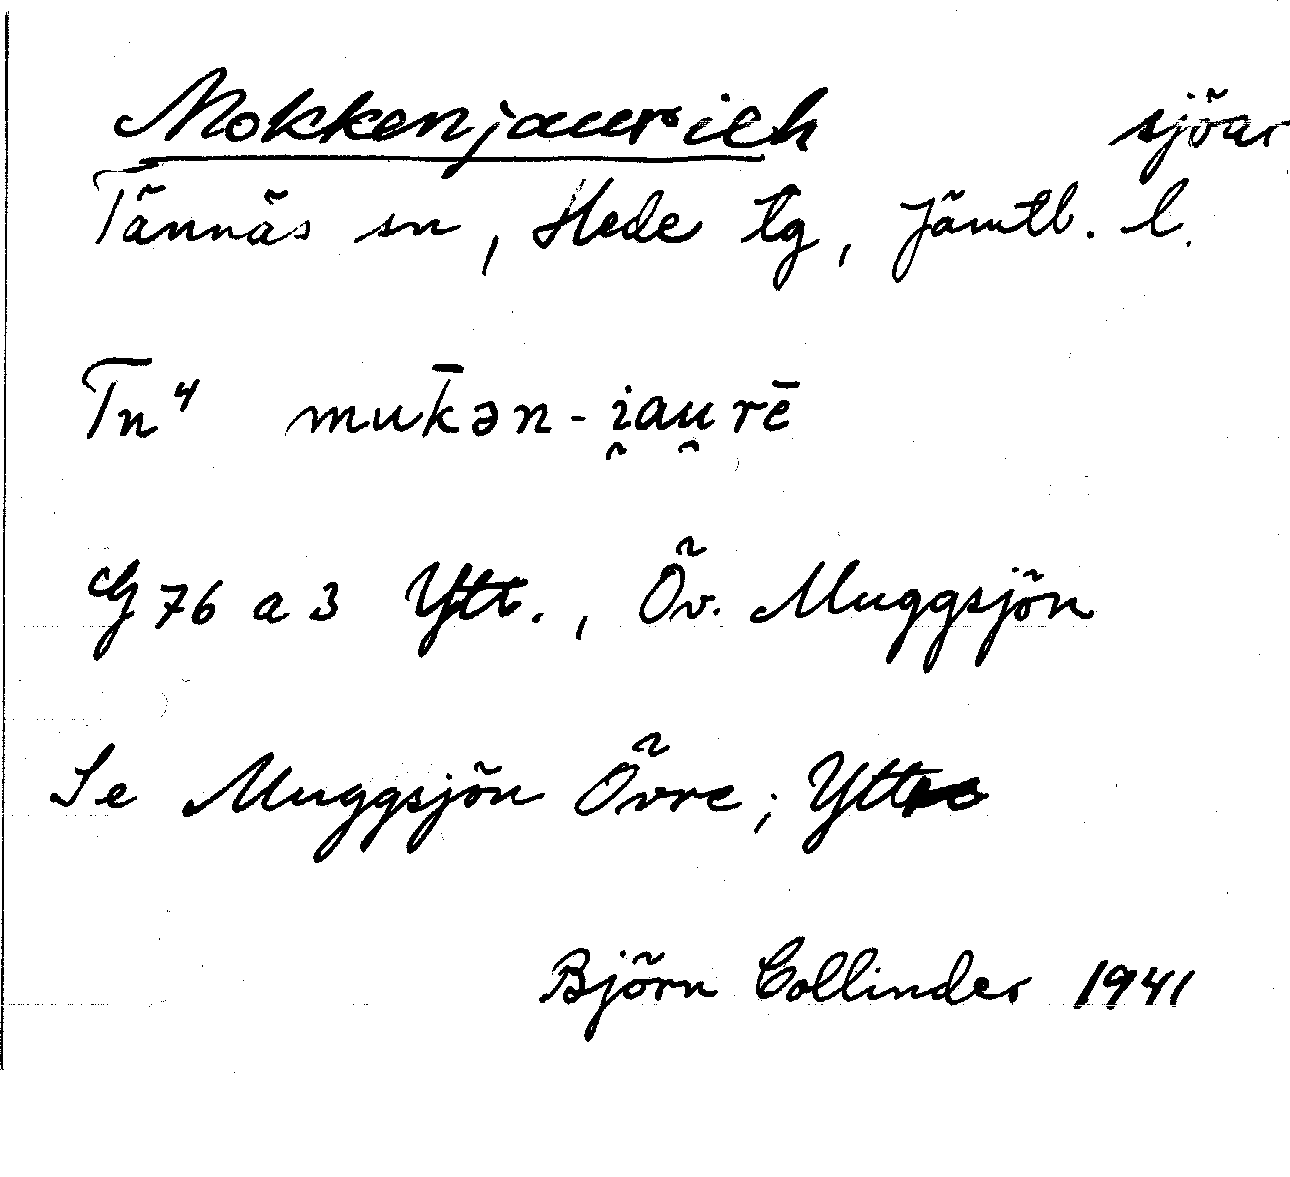 Mokkenjaurieh sjöar
Tännäs sn, Hede tg, Jämtl. l.
Tn⁴ muk̄ən-i̯au̯rē
G 76 a 3 Ytt., Öv. Muggsjön
Se Muggsjön Övre; Yttre
Björn Collinder 1941